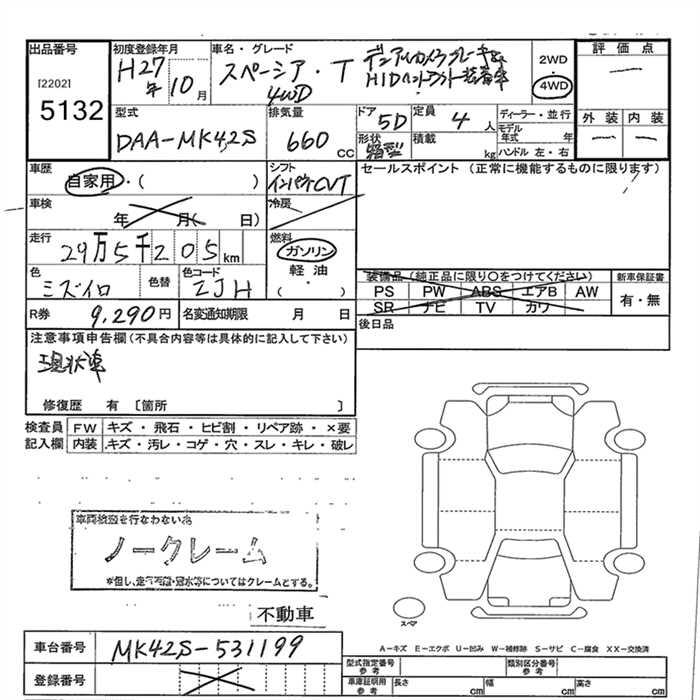 出品番号
[2202]
5132
初度登録年月
H27年 10月
車名・グレード
スペーシア・T
4WD
デュアルカメラブレーキ&
HIDヘッドライト装着車
2WD
・
4WD
評価点
―
外装 内装
― ―
型式
DAA-MK42S
排気量
660 CC
ドア
5D
形状
箱型
定員
4 人
積載
kg
ディーラー・並行
モデル年式 年
ハンドル 左・右
車歴
自家用・( )
シフト
インパネCVT
冷房
セールスポイント (正常に機能するものに限ります)
車検
年 月( 日)
走行
29万5千205km
燃料
ガソリン
軽油
( )
色
ミズイロ
色替
色コード
ZJH
装備品(純正品に限り○をつけてください)
PS PW ABS エアB AW
SR ナビ TV カワ
新車保証書
有・無
R券 9,290円
名変通知期限 月 日
後日品
注意事項申告欄(不具合内容等は具体的に記入して下さい)
現状車
修復歴 有 〔箇所 〕
検査員記入欄
FW キズ・飛石・ヒビ割・リペア跡・×要
内装 キズ・汚レ・コゲ・穴・スレ・キレ・破レ
車両検査を行なわない為
ノークレーム
※但し、走行不明・冠水等についてはクレームとする。
不動車
スペア
A-キズ E-エクボ U-凹み W-補修跡 S-サビ C-腐食 XX-交換済
車台番号 MK42S-531199
登録番号
型式指定番号参考
類別区分番号参考
車庫証明用参考
長さ cm 幅 cm 高さ cm